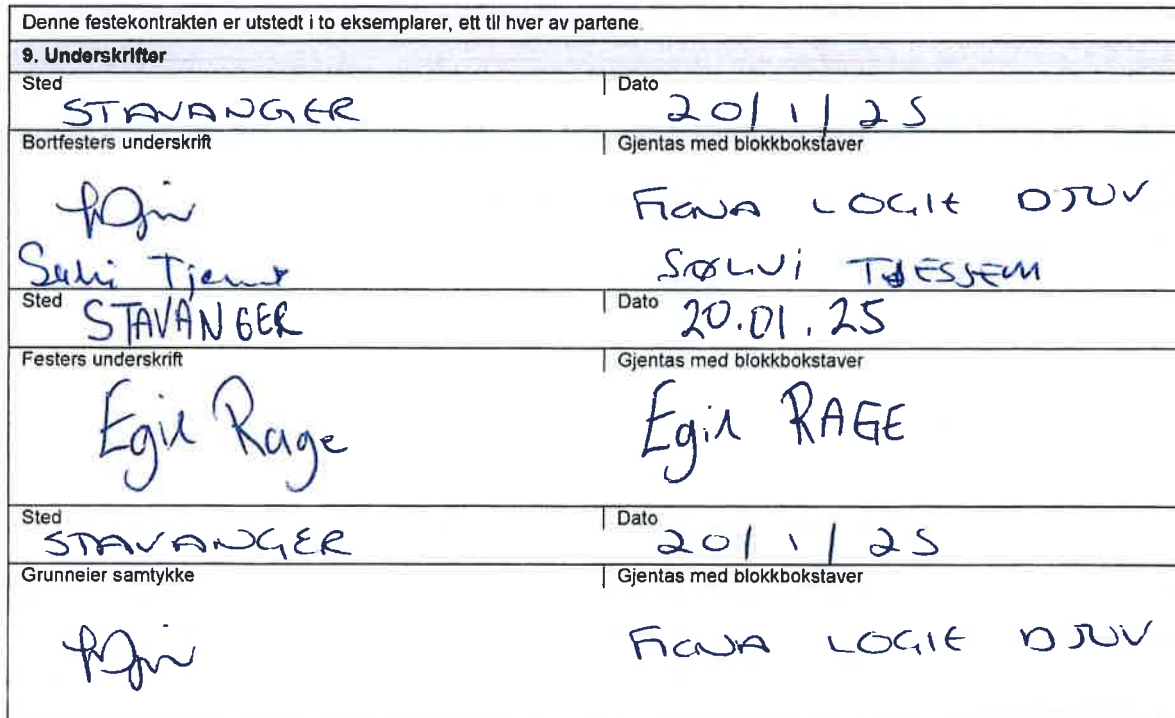 Denne festekontrakten er utstedt i to eksemplarer, ett til hver av partene.
9. Underskrifter
Sted Dato
STAVANGER 20/1/25
Bortfesters underskrift Gjentas med blokkbokstaver
FIONA LOGIE DJUV
Sølvi SØLVI
Sted Dato
STAVANGER 20.01.25
Festers underskrift Gjentas med blokkbokstaver
Egil Rage Egil RAGE
Sted Dato
STAVANGER 20/1/25
Grunneier samtykke Gjentas med blokkbokstaver
FIONA LOGIE DJUV